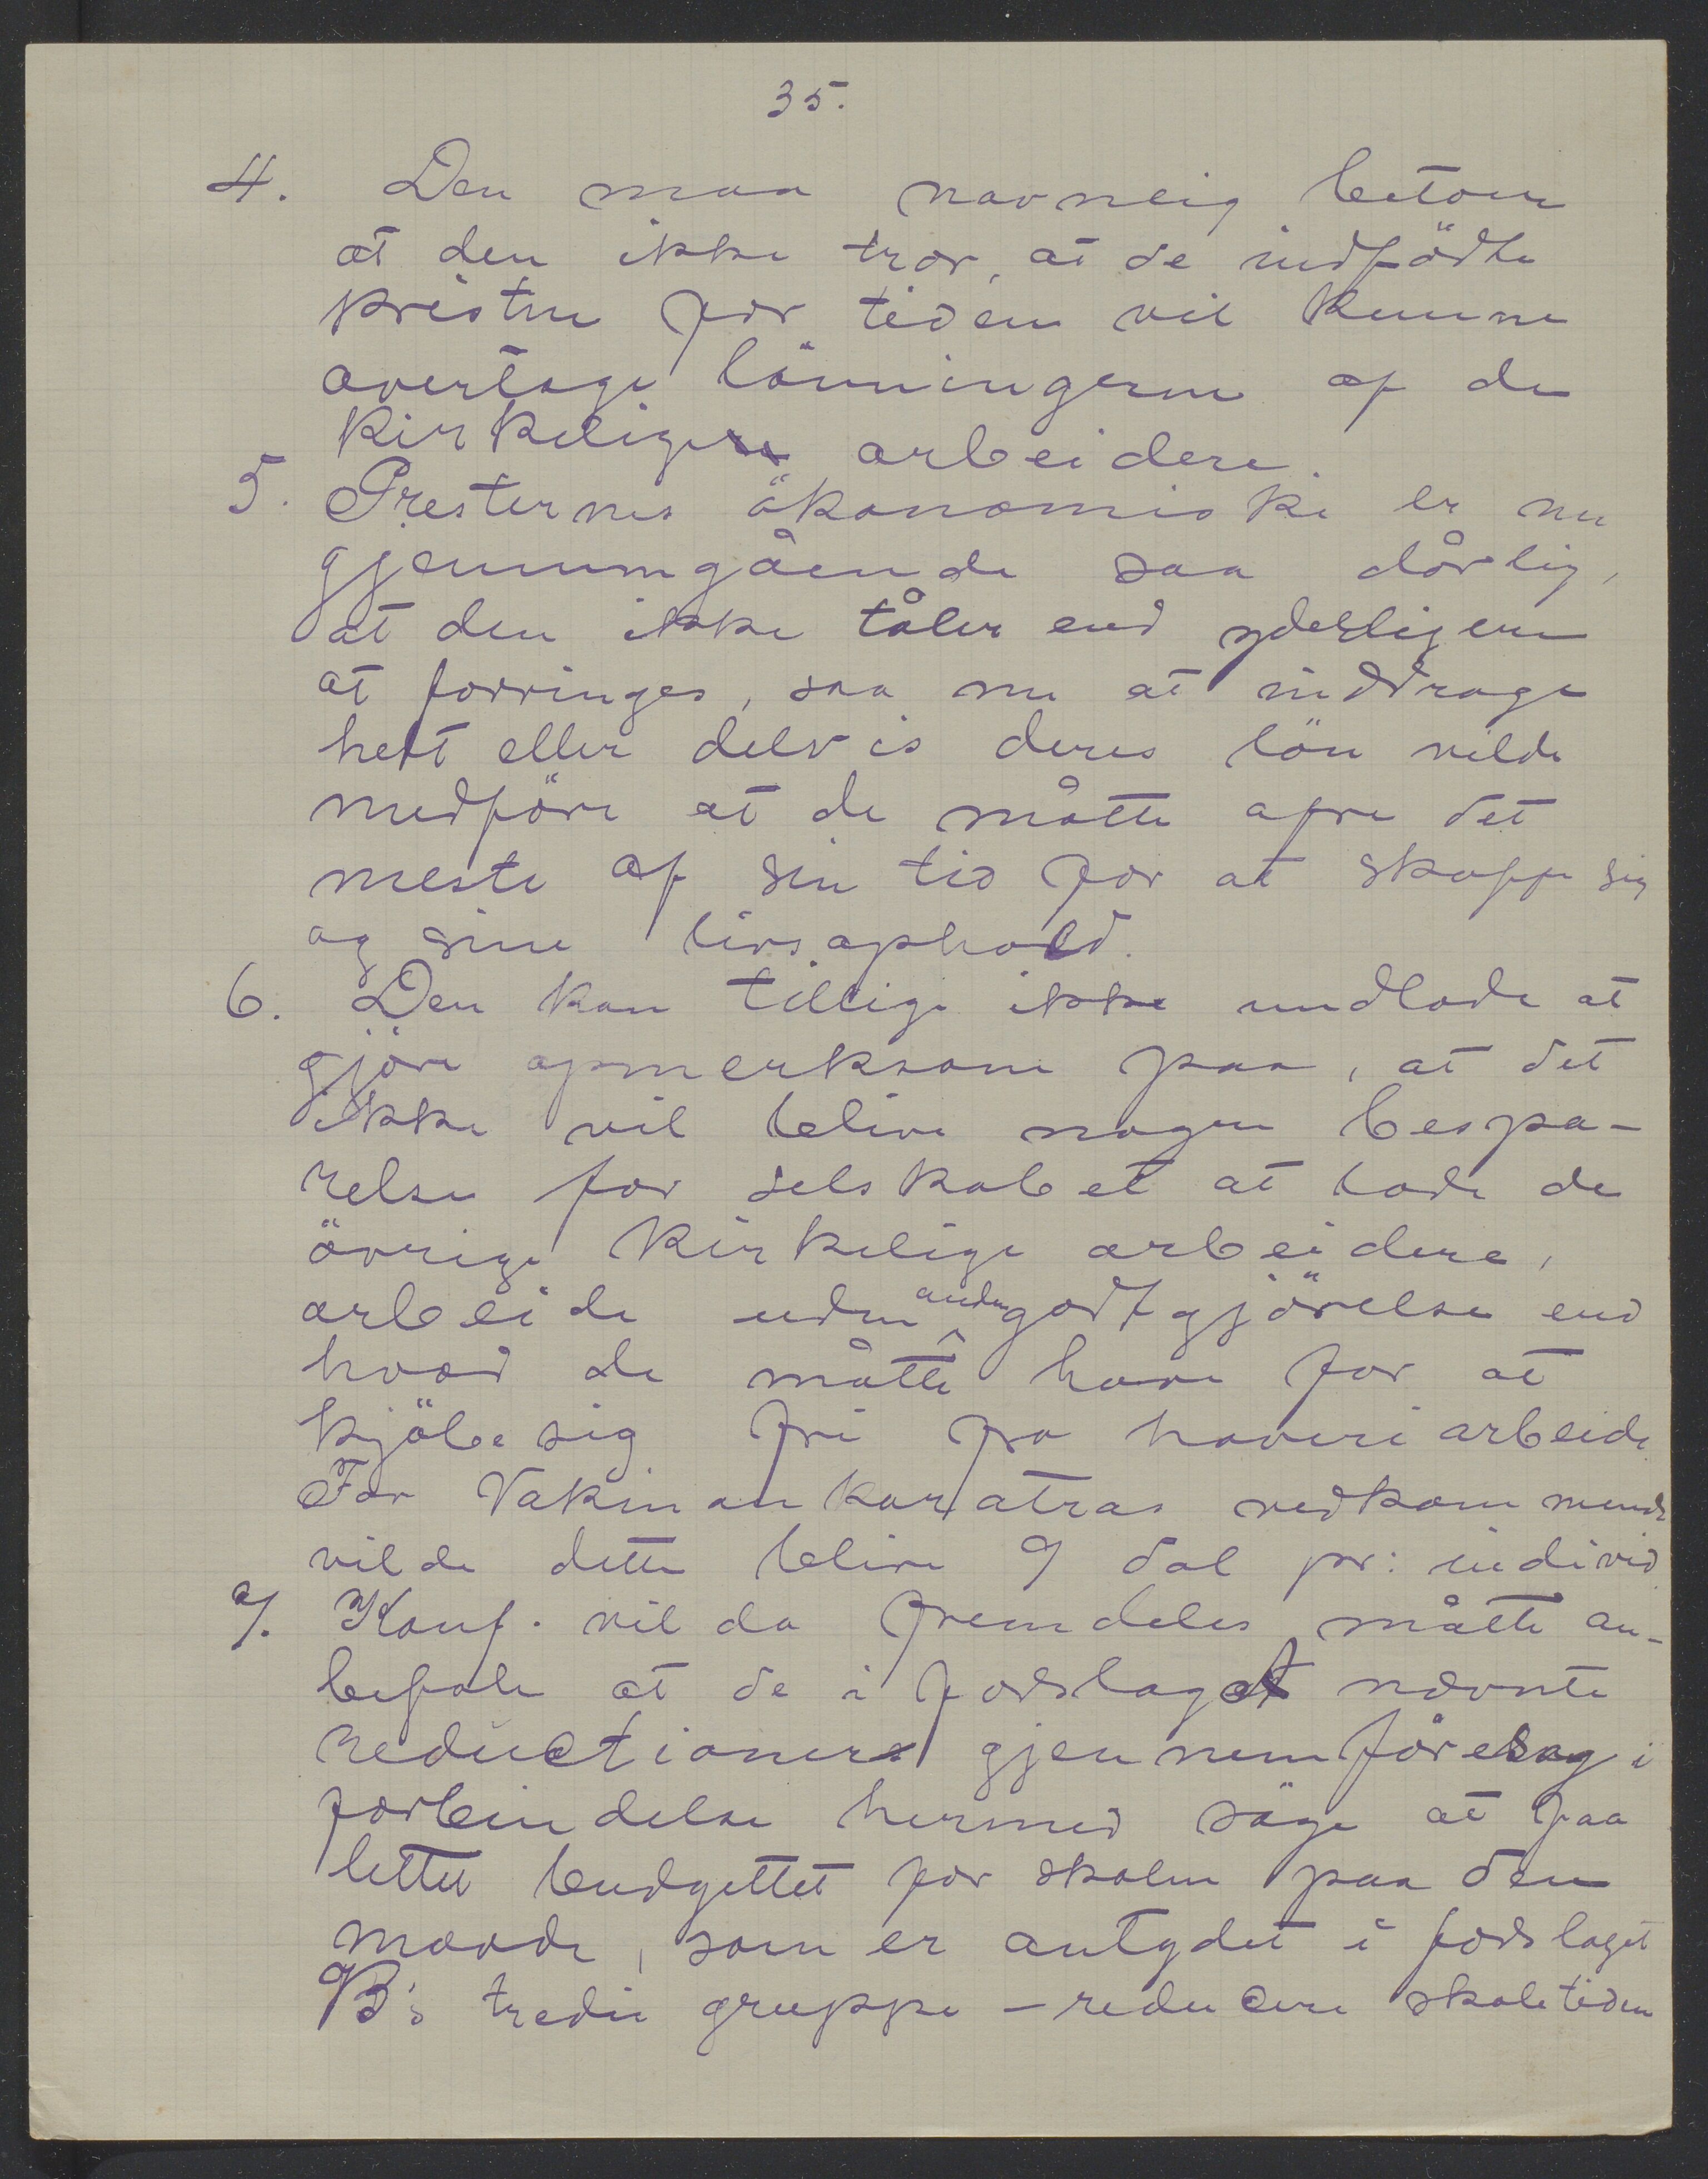 35.
4. Den maa navnlig betone
at den ikke tror, at de indfödte
kristne for tiden vil kunne
overtage lönningerne af de
kirkelige arbeidere.
5. Presternes ökonomiske er nu
gjennemgående saa dårlig,
at den ikke tåler end yderligere
at forringes, saa nu at inddrage
helt eller delvis deres lön vilde
medföre at de måtte ofre det
meste af sin tid for at skaffe sig
og sine livsophold.
6. Den kan tillige ikke undlade at
gjöre opmerksom paa, at det
ikke vil blive nogen bespa-
relse for selskabet at lade de
övrige kirkelige arbeidere,
arbeide uden anden godtgjörelse end
hvad de måtte have for at
kjöbe sig fri fra haveriarbeide
For Vakinankaratras vedkommende
vilde dette blive 9 dol pr: individ
7. Konf. vil da fremdeles måtte an-
befale at de i forslaget nævnte
reductioner gjennemföres og i
forbindelse hermed söge at faa
lettet budgettet for skolen paa den
maade, som er antydet i forslaget
B's tredie gruppe - reducere skoletiden